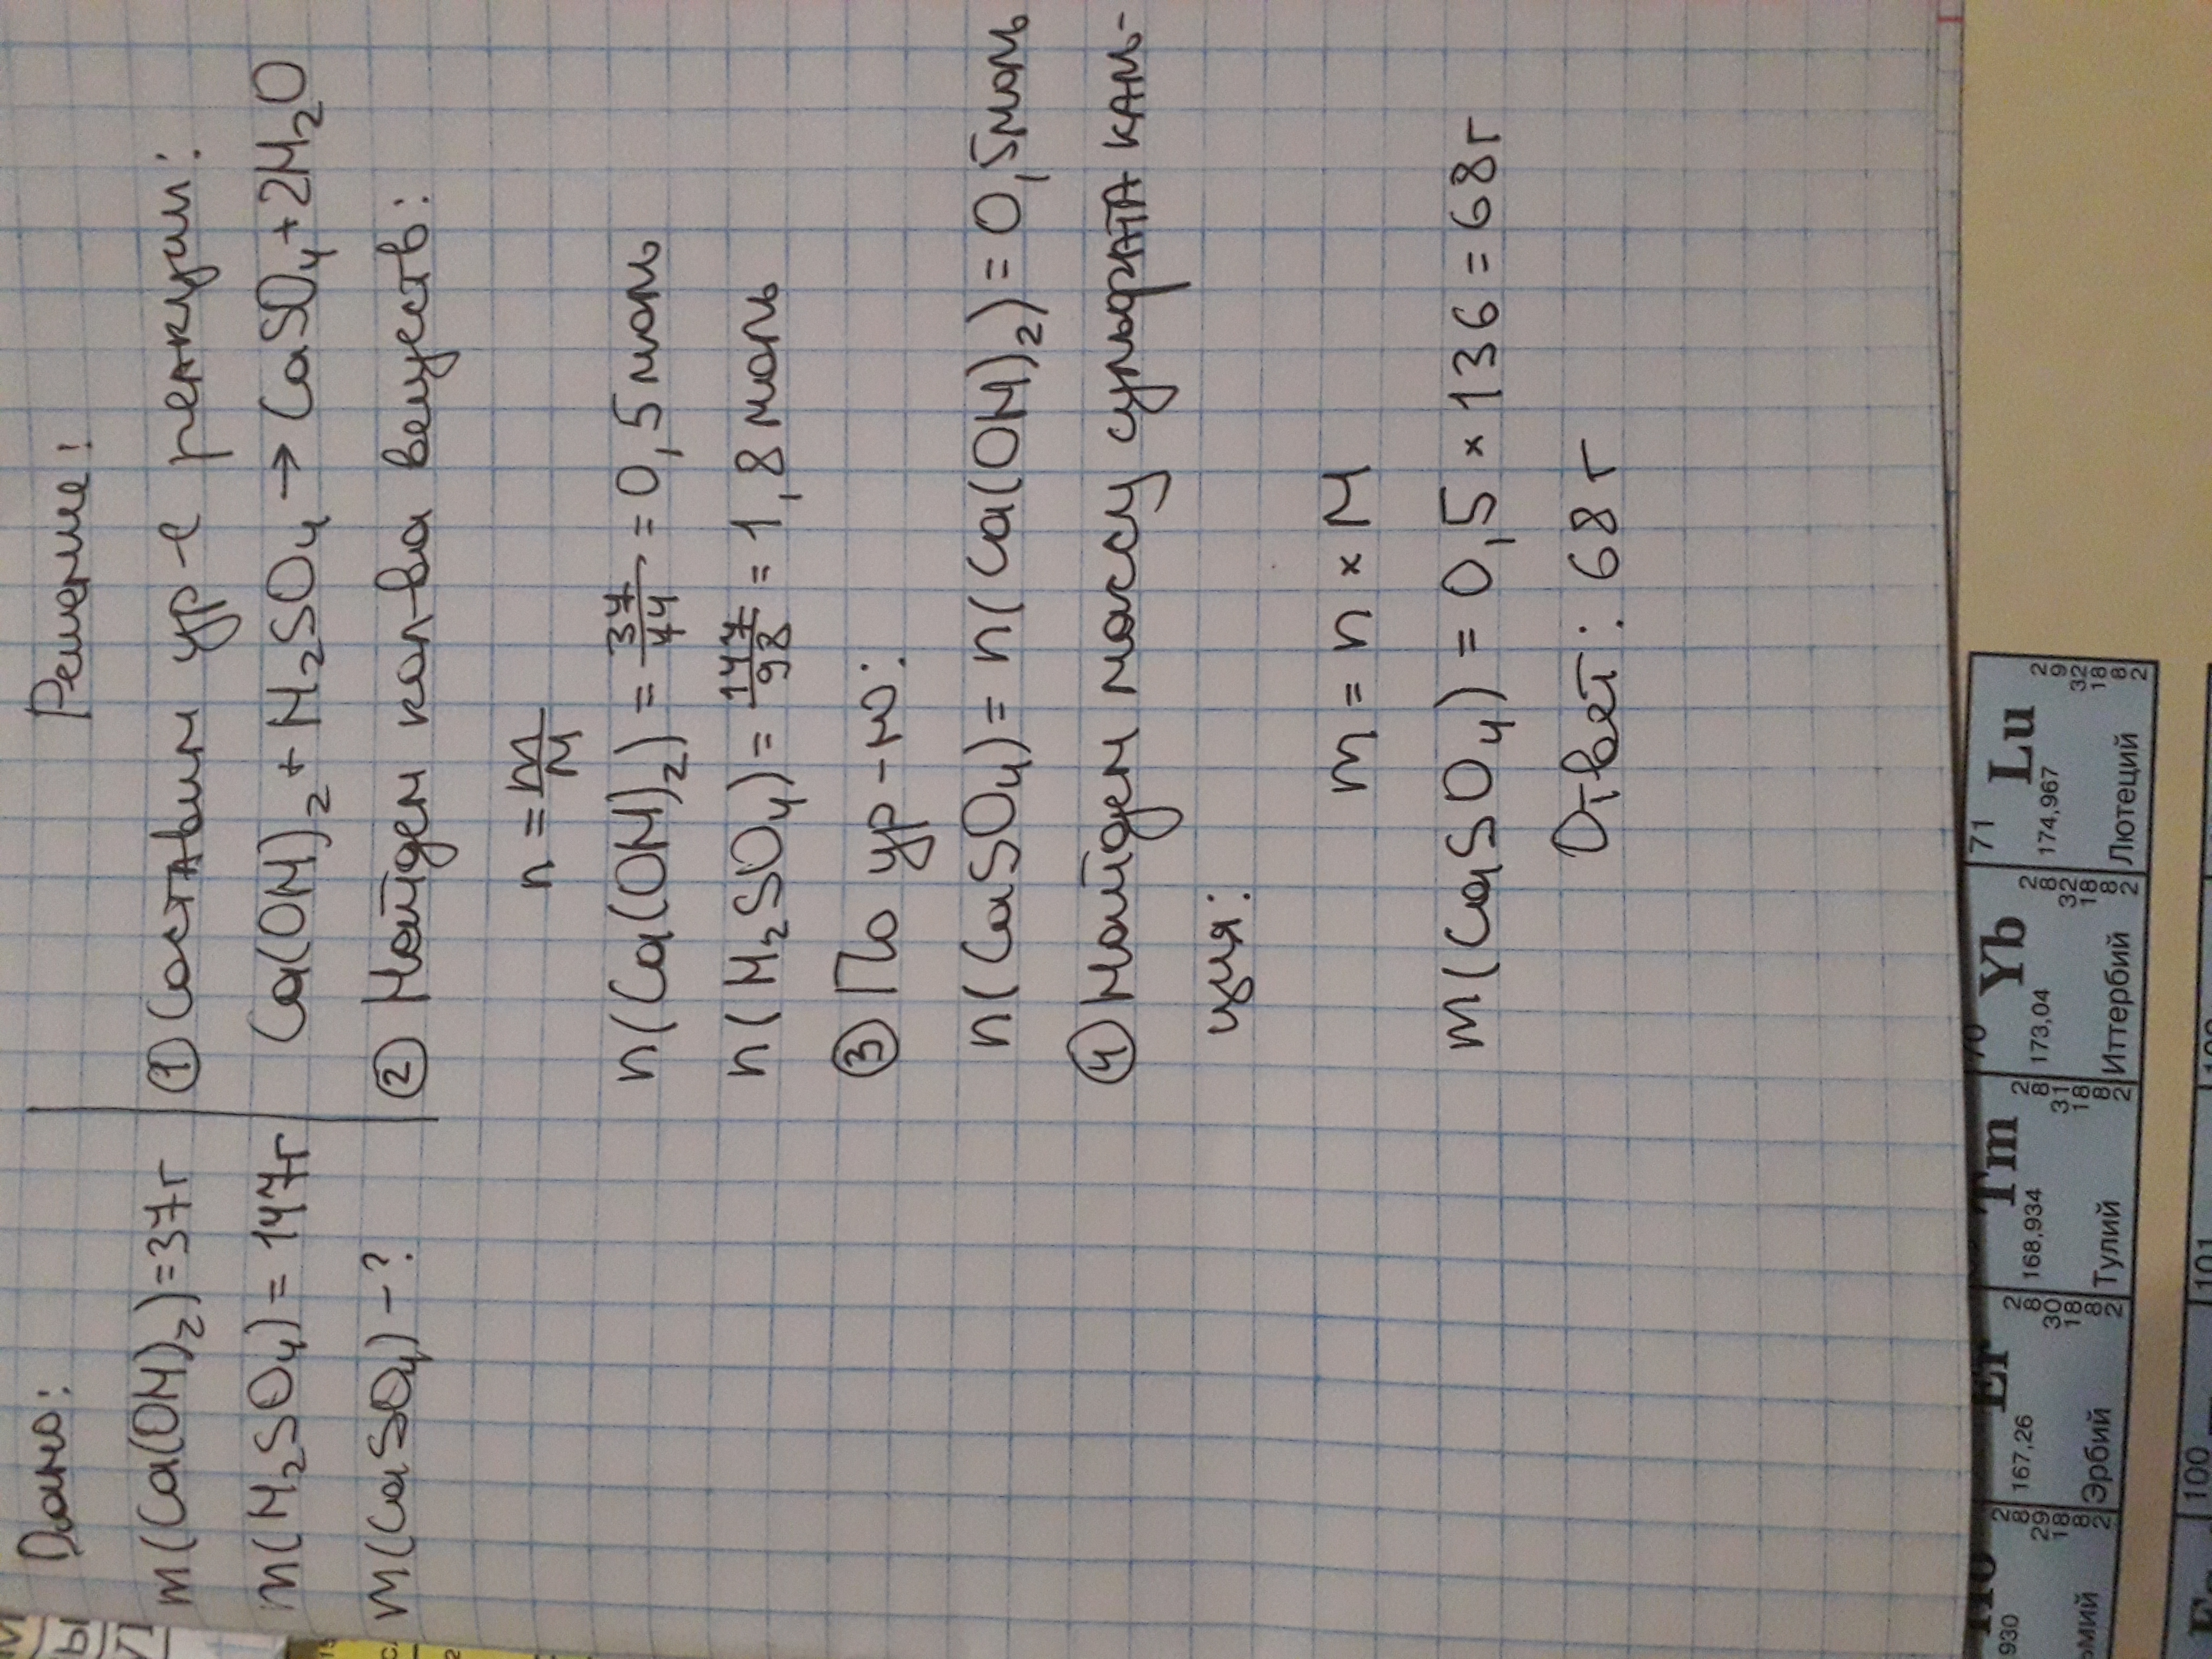 Дано:
m(Ca(OH)₂)=37г
m(H₂SO₄)=147г
m(CaSO₄)-?
Решение:
① Составим ур-е реакции:
Ca(OH)₂+H₂SO₄→CaSO₄+2H₂O
② Найдем кол-ва веществ:
n=m/M
n(Ca(OH)₂)=37/74=0,5 моль
n(H₂SO₄)=147/98=1,8 моль
③ По ур-ю:
n(CaSO₄)=n(Ca(OH)₂)=0,5моль
④ Найдем массу сульфата каль-
ция:
m=n×M
m(CaSO₄)=0,5×136=68г
Ответ: 68 г
71 Lu
174,967
Лютеций
2 9 32 18 8 2
70 Yb
173,04
Иттербий
2 8 32 18 8 2
Tm
168,934
Тулий
2 8 31 18 8 2
Er
167,26
Эрбий
2 8 30 18 8 2
Ho
930
2 8 29 18 8 2
100
101